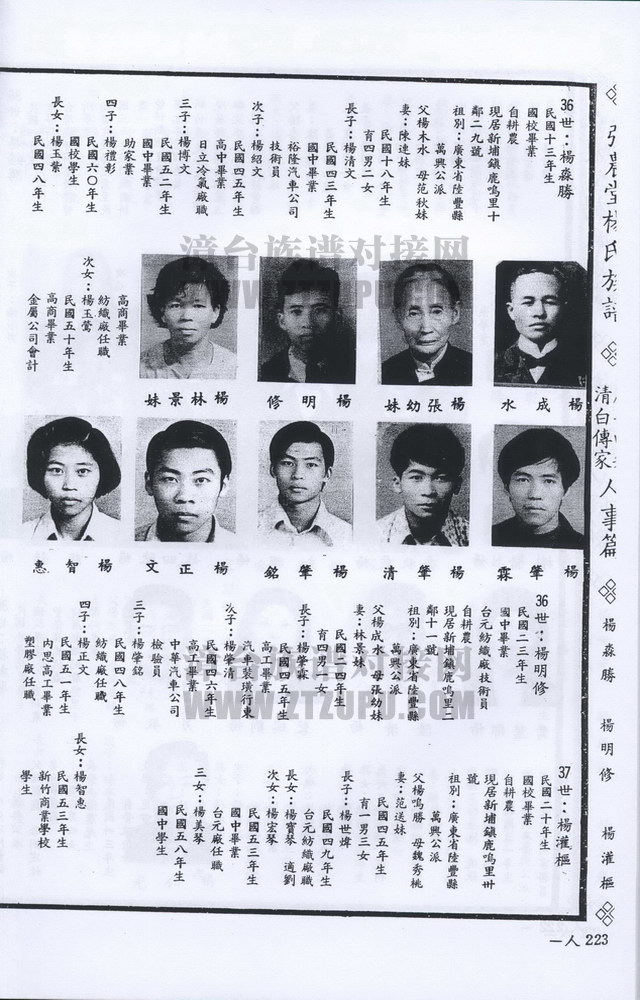 弘農堂楊氏族譜
清白傳家
人事篇
楊淼勝
楊明修
楊灌樞
36世：楊淼勝
民國十三年生
國校畢業
自耕農
現居新埔鎮鹿鳴里十
鄰二九號
祖別：廣東省陸豐縣
萬興公派
父楊木水 母范秋妹
妻：陳連妹
民國十八年生
育四男二女
長子：楊清文
民國四三年生
國中畢業
裕隆汽車公司
技術員
次子：楊紹文
民國四五年生
高中畢業
日立冷氣廠職
三子：楊博文
民國五二年生
國中畢業
助家業
四子：楊禮彰
民國六〇年生
國校學生
長女：楊玉紫
民國四八年生
高商畢業
紡織廠任職
次女：楊玉鶯
民國五十年生
高商畢業
金屬公司會計
楊成水
楊張幼妹
楊明修
楊林景妹
楊肇霖
楊肇清
楊肇銘
楊正文
楊智惠
36世：楊明修
民國二三年生
國中畢業
台元紡織廠技術員
自耕農
現居新埔鎮鹿鳴里二
鄰十一號
祖別：廣東省陸豐縣
萬興公派
父楊成水 母張幼妹
妻：林景妹
民國二四年生
育四男一女
長子：楊肇霖
民國四五年生
高工畢業
汽車裝璜行東
次子：楊肇清
民國四六年生
高工畢業
中華汽車公司
檢驗員
三子：楊肇銘
民國四八年生
紡織廠任職
四子：楊正文
民國五一年生
內思高工畢業
塑膠廠任職
長女：楊智惠
民國五三年生
新竹商業學校
學生
37世：楊灌樞
民國二十年生
國校畢業
自耕農
現居新埔鎮鹿鳴里卅
號
祖別：廣東省陸豐縣
萬興公派
父楊鳴勝 母魏秀桃
妻：范送妹
民國四五年生
育一男三女
長子：楊世煒
民國四九年生
台元紡織廠職
長女：楊寶琴 適劉
次女：楊宏琴
民國五三年生
國中畢業
台元廠任職
三女：楊美琴
民國五八年生
國中學生
人一 223
漳台族谱对接网
WWW.ZTZUPU.COM
漳台族谱对接网
WWW.ZTZUPU.COM